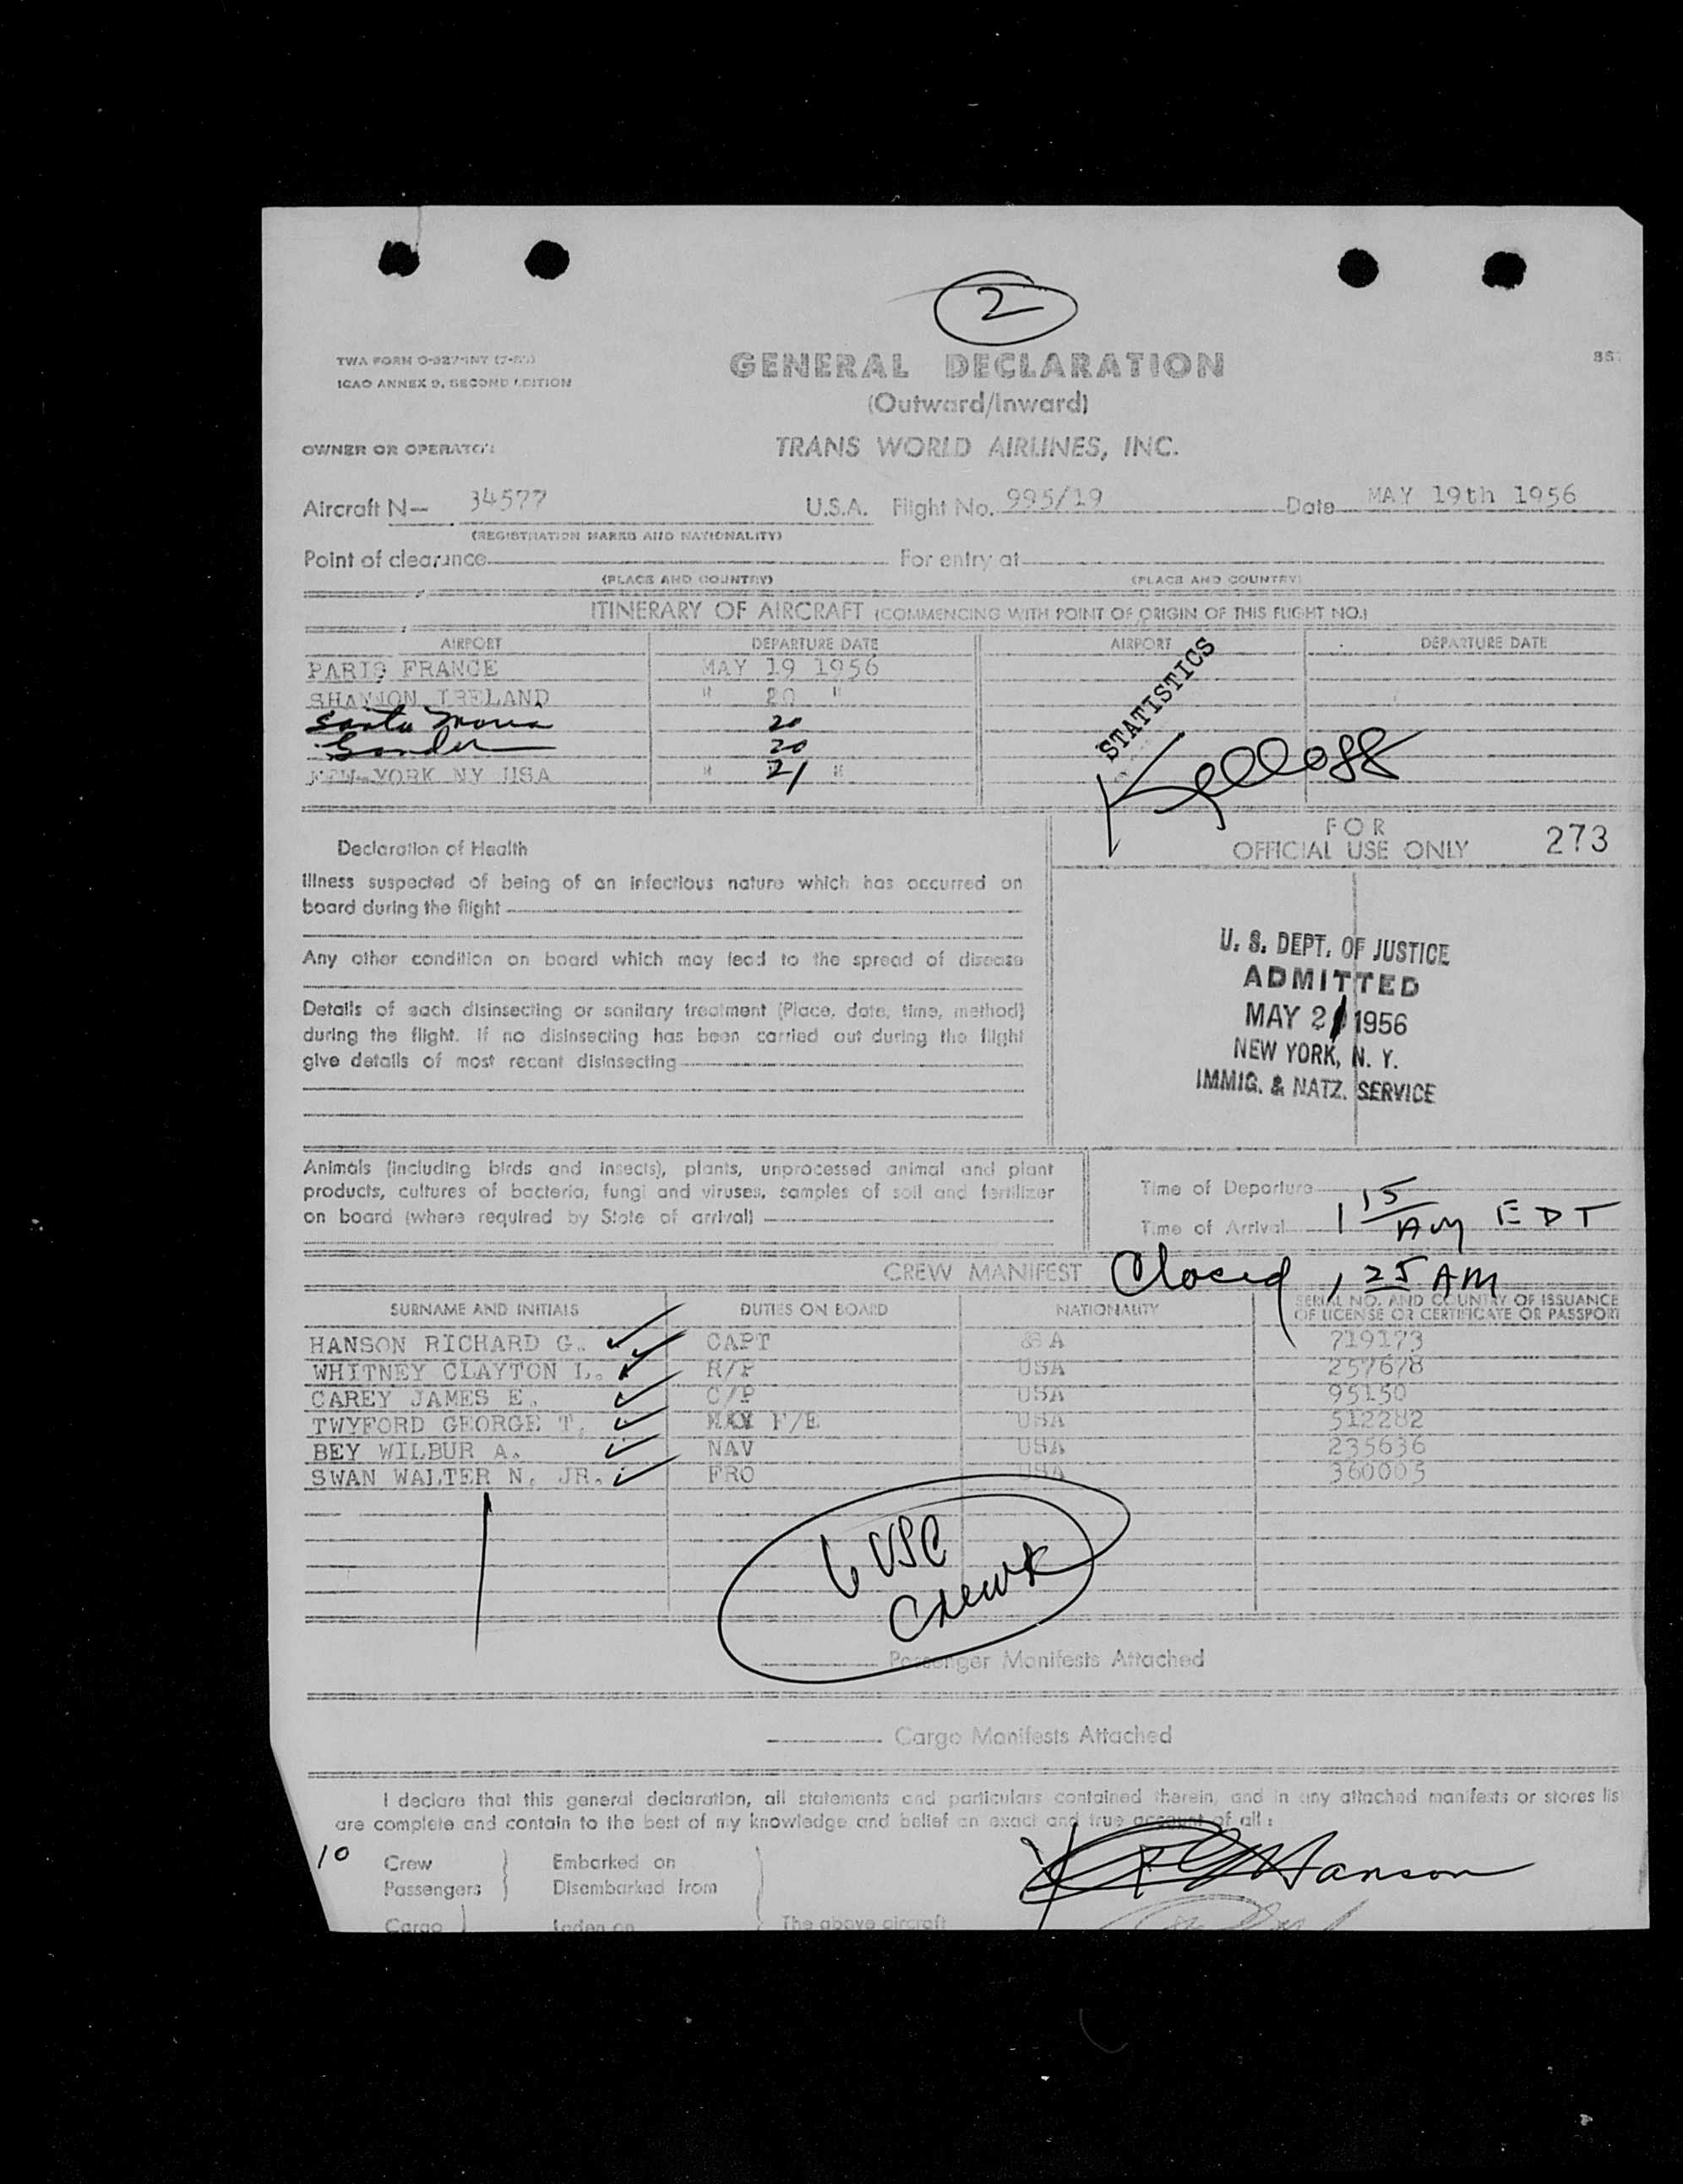 2
TWA FORM O-927-INT
ICAO ANNEX 9, SECOND EDITION
GENERAL DECLARATION
(Outward/Inward)
OWNER OR OPERATOR
TRANS WORLD AIRLINES, INC.
Aircraft N- 34577 U.S.A. Flight No. 995/19 Date MAY 19th 1956
(REGISTRATION MARKS AND NATIONALITY)
Point of clearance For entry at
(PLACE AND COUNTRY) (PLACE AND COUNTRY)
ITINERARY OF AIRCRAFT (COMMENCING WITH POINT OF ORIGIN OF THIS FLIGHT NO.)
AIRPORT DEPARTURE DATE AIRPORT DEPARTURE DATE
PARIS FRANCE MAY 19 1956
SHANNON IRELAND " 20 "
Santa Maria 20
Gander 20
NEW YORK NY USA " 21 "
STATISTICS
Kellogg
Declaration of Health
FOR
OFFICIAL USE ONLY 273
Illness suspected of being of an infectious nature which has occurred on
board during the flight
Any other condition on board which may lead to the spread of disease
Details of each disinsecting or sanitary treatment (Place, date, time, method)
during the flight. If no disinsecting has been carried out during the flight
give details of most recent disinsecting
U. S. DEPT. OF JUSTICE
ADMITTED
MAY 21 1956
NEW YORK, N. Y.
IMMIG. & NATZ. SERVICE
Animals (including birds and insects), plants, unprocessed animal and plant
products, cultures of bacteria, fungi and viruses, samples of soil and fertilizer
on board (where required by State of arrival)
Time of Departure
Time of Arrival 1 15 AM EDT
CREW MANIFEST Closed 1 25 AM
SURNAME AND INITIALS DUTIES ON BOARD NATIONALITY SERIAL NO. AND COUNTRY OF ISSUANCE
OF LICENSE OR CERTIFICATE OR PASSPORT
HANSON RICHARD G. CAPT SA 719173
WHITNEY CLAYTON L. R/P USA 257678
CAREY JAMES E. C/P USA 95150
TWYFORD GEORGE T. F/E USA 512282
BEY WILBUR A. NAV USA 235636
SWAN WALTER N. JR. FRO USA 360005
6 USC
Crew
Passenger Manifests Attached
Cargo Manifests Attached
I declare that this general declaration, all statements and particulars contained therein, and in any attached manifests or stores lis
are complete and contain to the best of my knowledge and belief an exact and true account of all:
10
Crew Embarked on
Passengers Disembarked from
R G Hanson
Cargo Laden on The above aircraft